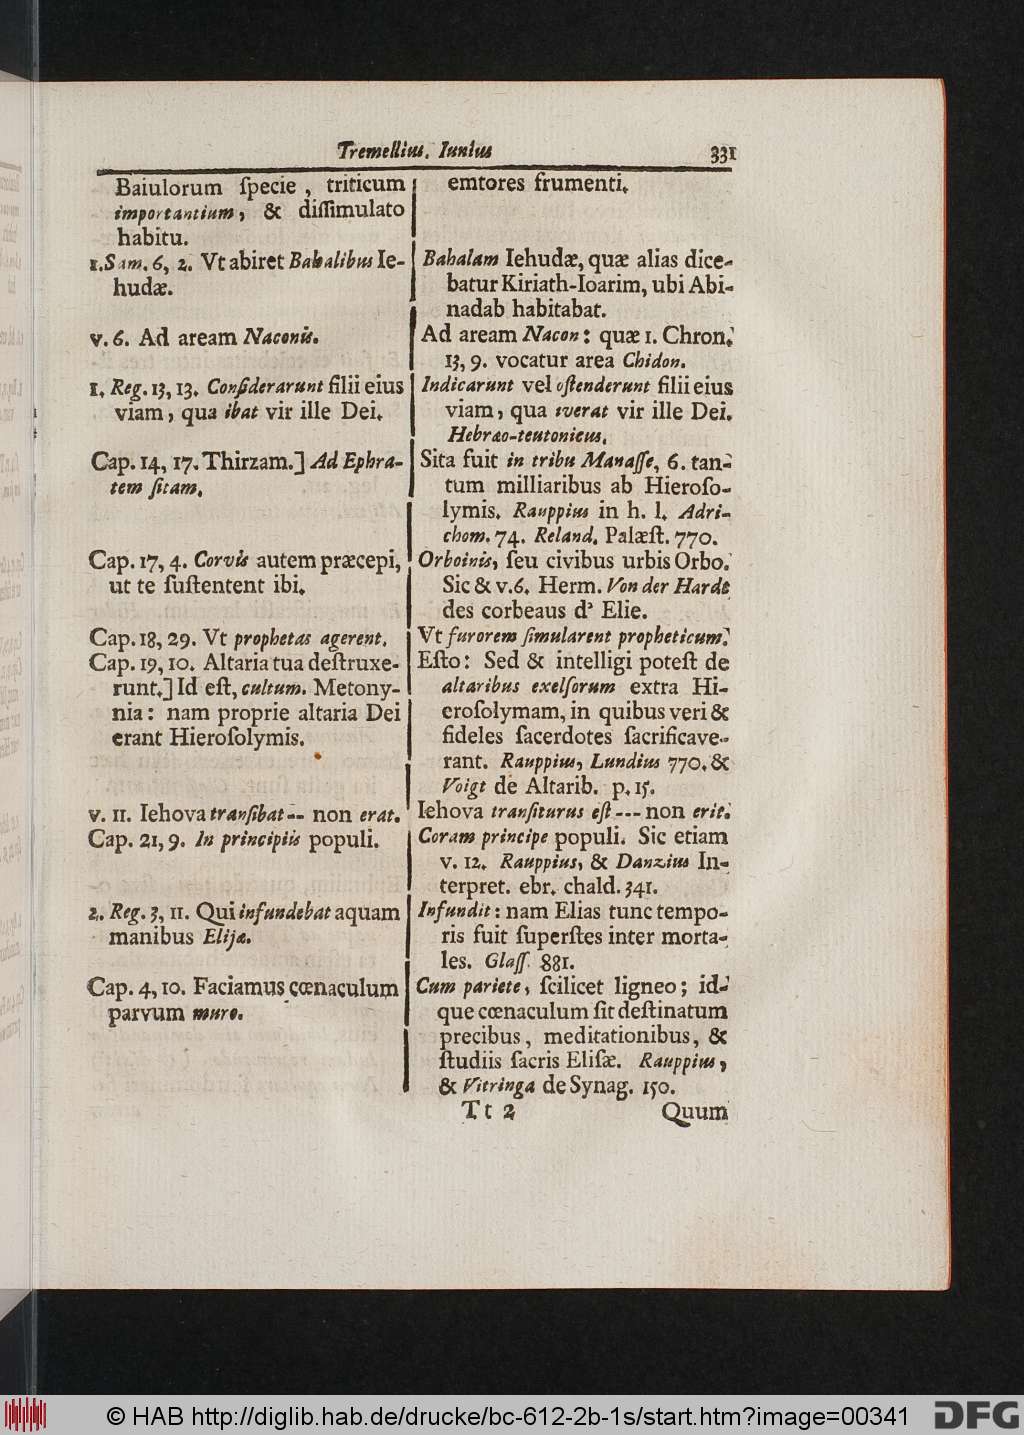 Tremellius. Iunius 331
Baiulorum ſpecie, triticum
importantium, & diſſimulato
habitu.
1. Sam. 6, 2. Vt abiret Bahalibus Ie-
hudæ.
v. 6. Ad aream Naconis.
1. Reg. 13, 13. Conſiderarunt filii eius
viam, qua ibat vir ille Dei.
Cap. 14, 17. Thirzam.] Ad Ephra-
tem ſitam.
Cap. 17, 4. Corvis autem præcepi,
ut te ſuſtentent ibi.
Cap. 18, 29. Vt prophetas agerent.
Cap. 19, 10. Altaria tua deſtruxe-
runt.] Id eſt, cultum. Metony-
nia: nam proprie altaria Dei
erant Hieroſolymis.
v. 11. Iehova tranſibat -- non erat.
Cap. 21, 9. In principiis populi.
2. Reg. 3, 11. Qui infundebat aquam
manibus Elijæ.
Cap. 4, 10. Faciamus cœnaculum
parvum muro.
emtores frumenti.
Bahalam Iehudæ, quæ alias dice-
batur Kiriath-Ioarim, ubi Abi-
nadab habitabat.
Ad aream Nacon: quæ 1. Chron.
13, 9. vocatur area Chidon.
Indicarunt vel oſtenderunt filii eius
viam, qua iverat vir ille Dei.
Hebræo-teutonicus.
Sita fuit in tribu Manaſſe, 6. tan-
tum milliaribus ab Hieroſo-
lymis. Rauppius in h. l. Adri-
chom. 74. Reland. Palæſt. 770.
Orboinis, ſeu civibus urbis Orbo.
Sic & v. 6. Herm. Von der Hardt
des corbeaus d' Elie.
Vt furorem ſimularent propheticum.
Eſto: Sed & intelligi poteſt de
altaribus exelſorum extra Hi-
eroſolymam, in quibus veri &
fideles ſacerdotes ſacrificave-
rant. Rauppius, Lundius 770. &
Voigt de Altarib. p. 15.
Iehova tranſiturus eſt --- non erit.
Coram principe populi. Sic etiam
v. 12. Rauppius, & Danzius In-
terpret. ebr. chald. 341.
Infundit: nam Elias tunc tempo-
ris fuit ſuperſtes inter morta-
les. Glaſſ. 881.
Cum pariete, ſcilicet ligneo; id-
que cœnaculum ſit deſtinatum
precibus, meditationibus, &
ſtudiis ſacris Eliſæ. Rauppius,
& Vitringa de Synag. 150.
Tt 2 Quum
© HAB http://diglib.hab.de/drucke/bc-612-2b-1s/start.htm?image=00341 DFG